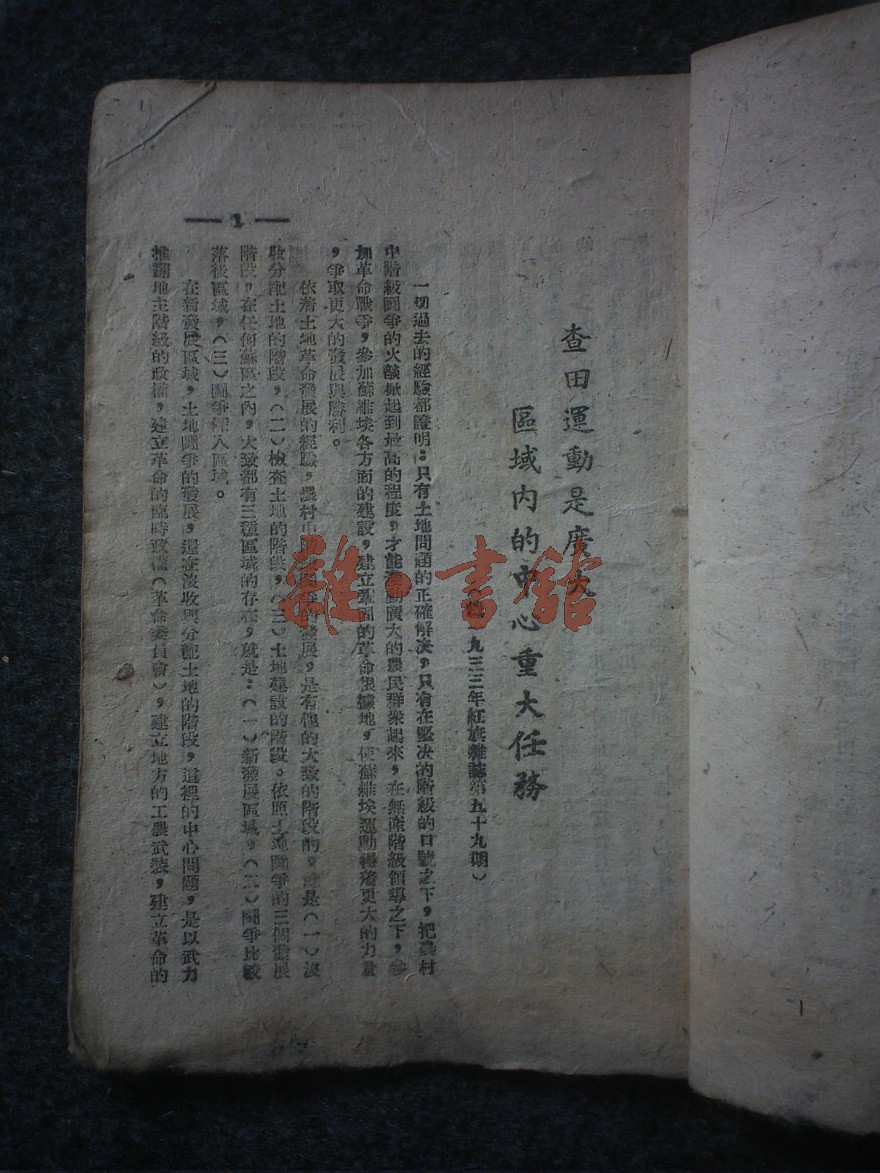 查田運動是廣大
區域內的中心重大任務
九三三年紅旗雜誌第五十九期）
一切過去的經驗都證明：只有土地問題的正確解決，只有在堅决的階級的口號之下，把農村
中階級鬪爭的火燄掀起到最高的程度，才能發動廣大的農民群衆起來，在無產階級領導之下，參
加革命戰爭，參加蘇維埃各方面的建設，建立鞏固的革命根據地，使蘇維埃運動得着更大的力量
，爭取更大的發展與勝利。
依着土地革命發展的經驗，農村中階級鬪爭的發展，是有他的大致的階段的，就是（一）沒
收分配土地的階段，（二）檢查土地的階段，（三）土地建設的階段。依照土地鬪爭的三個發展
階段，在任何蘇區之內，大致都有三種區域的存在，就是：（一）新發展區域，（二）鬪爭比較
落後區域，（三）鬪爭深入區域。
在新發展區域，土地鬪爭的發展，還在沒收與分配土地的階段，這裡的中心問題，是以武力
推翻地主階級的政權，建立革命的臨時政權（革命委員會），建立地方的工農武裝，建立革命的
— 1 —
雜書館